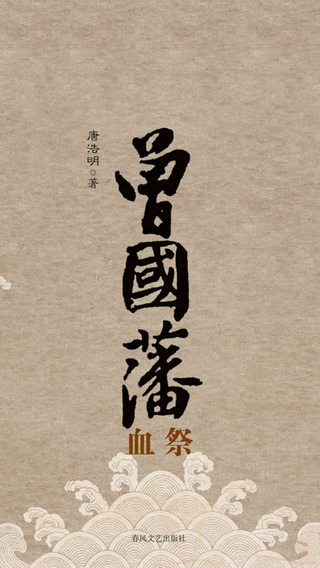 曾國藩
血祭
唐浩明◎著
春风文艺出版社